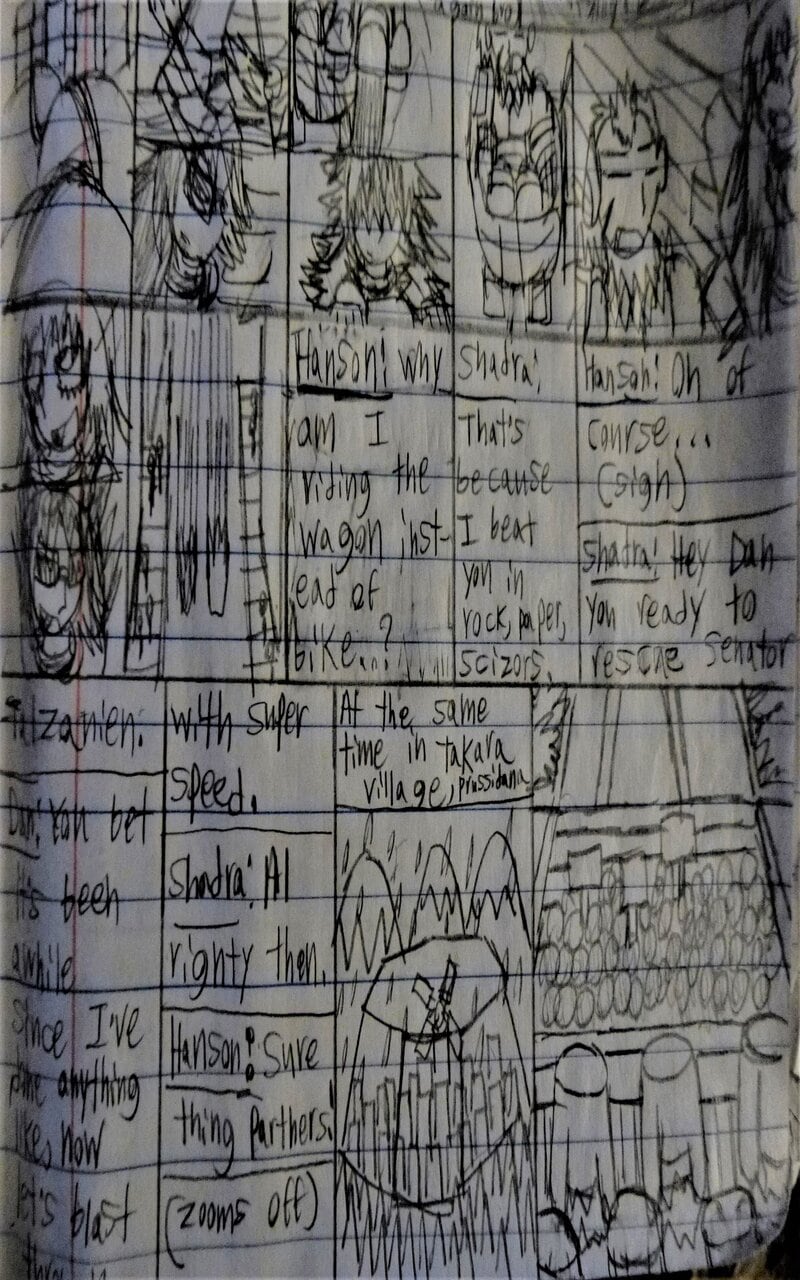 Hanson: why
am I
riding the
wagon inst-
ead of
bike...?
Shadra:
That's
because
I beat
you in
rock, paper,
scizors.
Hanson: Oh of
course...
(sigh)
Shadra: Hey Dan
you ready to
rescue Senator
Dan: Yah bet
it's been
awhile
since I've
anything
now
let's blast
with super
speed.
Shadra: Al
righty then.
Hanson: Sure
thing partners!
(zooms off)
At the same
time in takara
village, prussidania